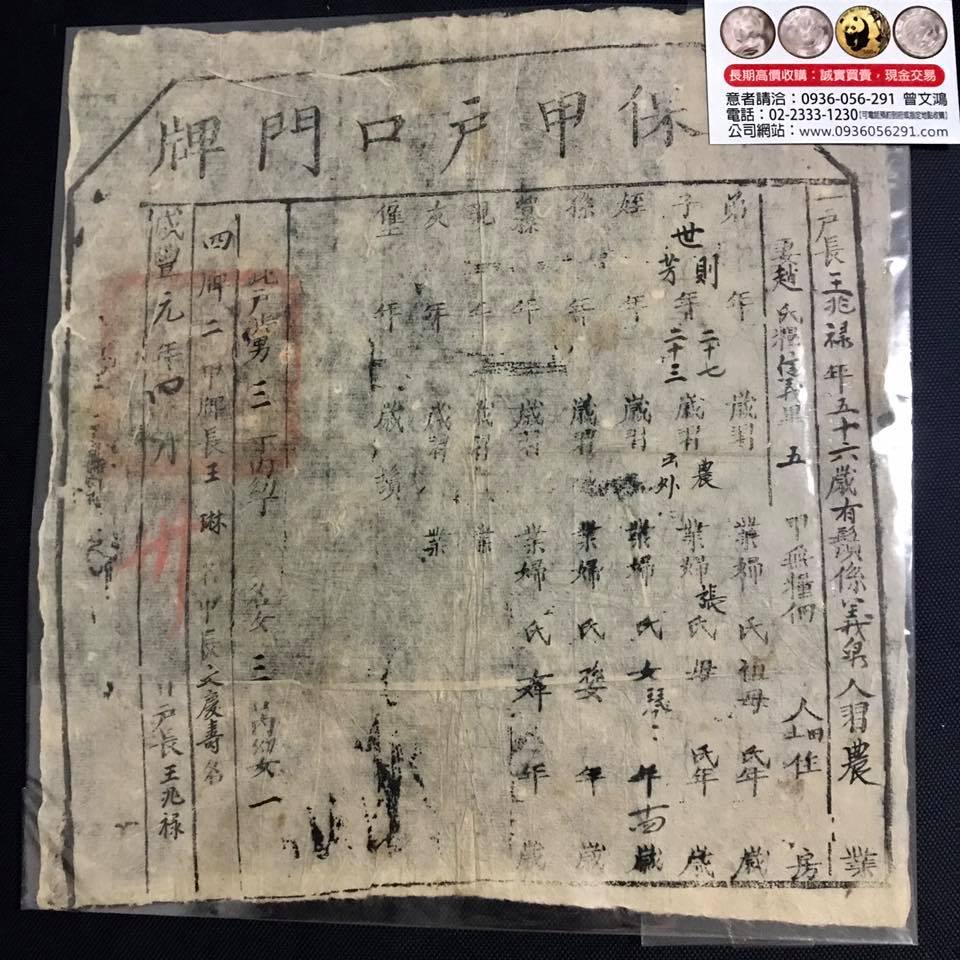 保甲戶口門牌
一戶長王兆祿年五十六歲有鬚係義泉人習農業
妻趙氏糧信義里五甲無糧佃人田住房
弟年歲習業婦氏祖母氏年歲
子世則芳年二十七二十三歲習農業婦張氏母氏年歲
姪年歲習業婦氏女年歲
孫年歲習業婦氏年歲
年歲習業婦氏年歲
親年歲習業
友年歲習業
年歲
此戶男三丁名女三幼女一
四牌二甲牌長王琳甲長文慶壽
咸豐元年四月戶長王兆祿
長期高價收購:誠實買賣,現金交易
意者請洽:0936-056-291 曾文鴻
電話:02-2333-1230
公司網站:www.0936056291.com